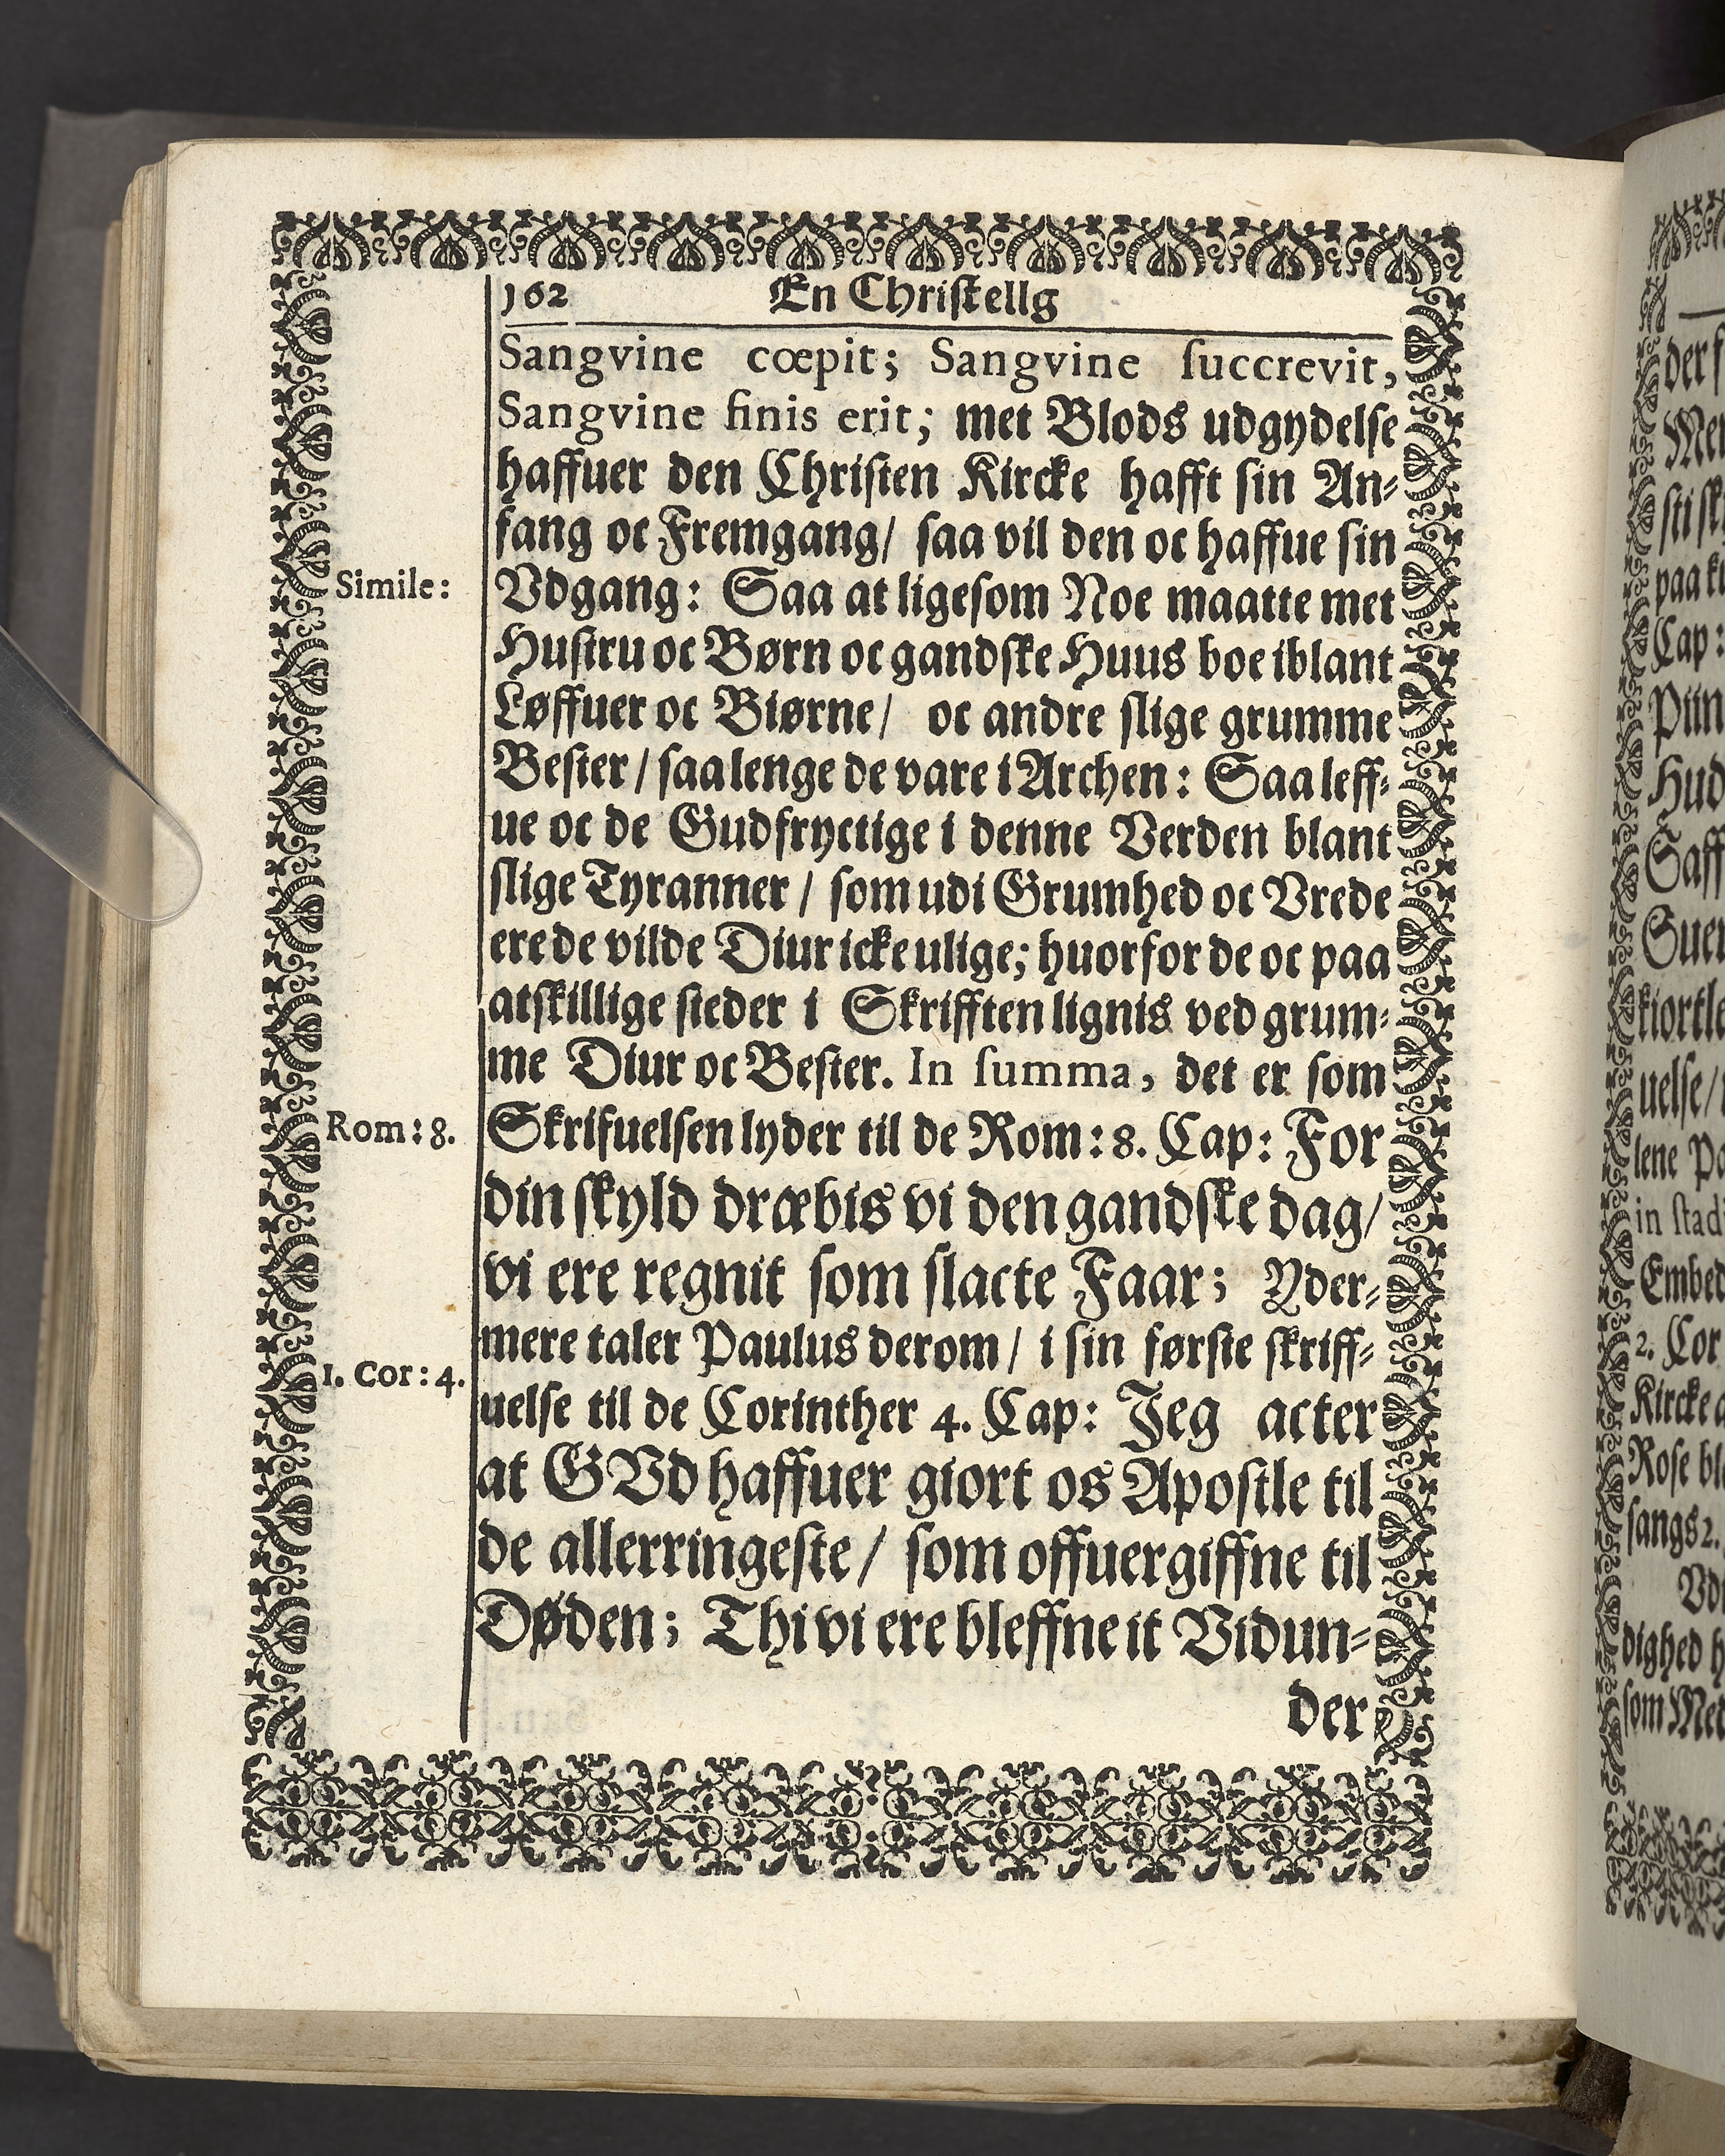 162 En Christellg
Sangvine cœpit; Sangvine ſuccrevit,
Sangvine finis erit; met Blods udgydelſe
haffuer den Chriſten Kircke hafft ſin An⸗
fang oc Fremgang/ ſaa vil den oc haffue ſin
Simile:
Vdgang: Saa at ligeſom Noe maatte met
Huſtru oc Børn oc gandſke Huus boe iblant
Løffuer oc Biørne/ oc andre ſlige grumme
Beſter/ ſaa lenge de vare i Archen: Saa leff⸗
ue oc de Gudfryctige i denne Verden blant
ſlige Tyranner/ ſom udi Grumhed oc Vrede
ere de vilde Diur icke ulige; huorfor de oc paa
atſkillige ſteder i Skrifften lignis ved grum⸗
me Diur oc Beſter. In ſumma, det er ſom
Rom: 8.
Skrifuelſen lyder til de Rom: 8. Cap: For
din ſkyld dræbis vi den gandſke dag/
vi ere regnit ſom ſlacte Faar; Yder⸗
mere taler Paulus derom/ i ſin førſte ſkriff⸗
1. Cor: 4.
uelſe til de Corinther 4. Cap: Jeg acter
at GVd haffuer giort os Apoſtle til
de allerringeſte/ ſom offuergiffne til
Døden; Thi vi ere bleffne it Vidun⸗
der
der ſ
Mer
ſti ſk
paa k
Cap:
Piin
Hud
Saff
Suer
kiortle
uelſe/
lene Pa
in ſtad
Embed
2. Cor
Kircke
Roſe bl
ſangs 2.
Vd
dighed h
ſom Met